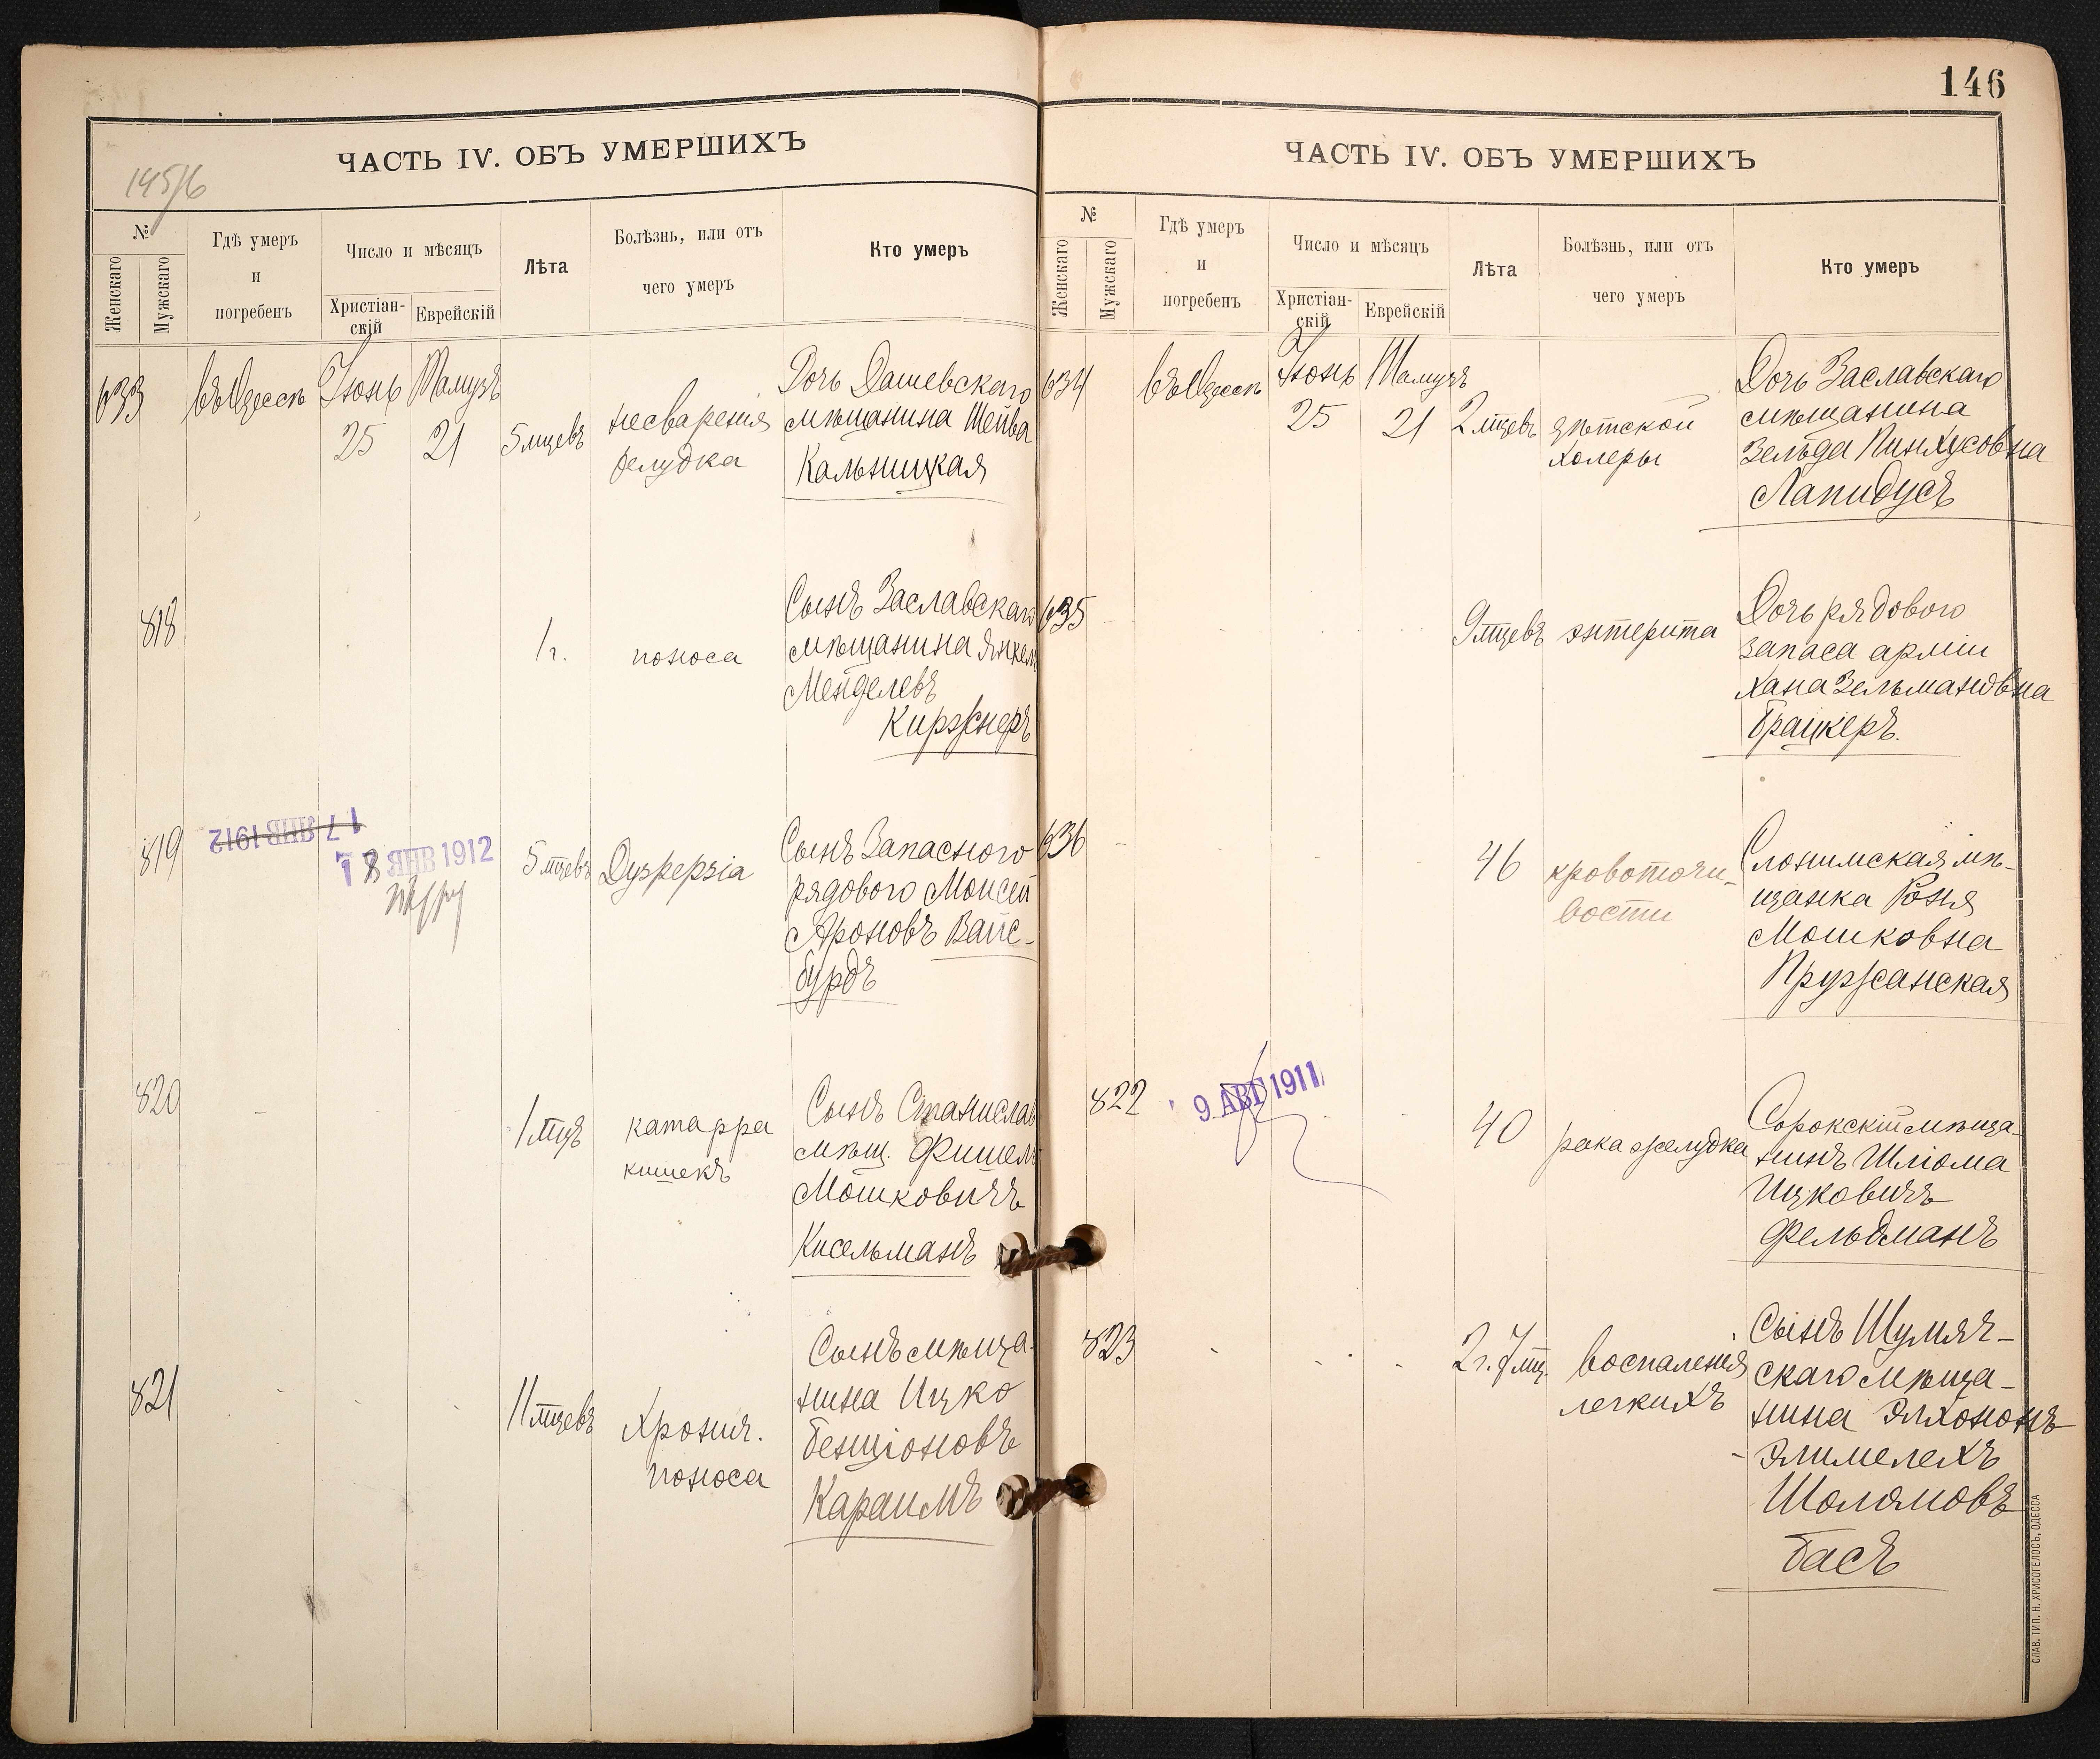 ЧАСТЬ IV. ОБЪ УМЕРШИХЪ
145/6
№
Женскаго
Мужскаго
Гдѣ умеръ
и
погребенъ
Число и мѣсяцъ
Христіан-
скій
Еврейскій
Лѣта
Болѣзнь, или отъ
чего умеръ
Кто умеръ
633
въ Одессѣ
Іюнь
25
Тамузъ
21
5 мцевъ
несваренія
желудка
Дочь Дашевскаго
мѣщанина Шейва
Кальницкая
818
1 г.
поноса
Сынъ Заславскаго
мѣщанина Янкель
Менделевъ
Киржнеръ
819
17 ЯНВ 1912
18 ЯНВ 1912
5 мцевъ
Сынъ Запаснаго
рядового Моисей
Ароновъ Вайс-
бурдъ
820
1 мцъ
катарра
кишекъ
Сынъ Станислав
мѣщ. Фишель
Мошковичъ
Кисельманъ
821
11 мцевъ
Хронич.
поноса
Сынъ мѣща-
нина Ицко
Бенціоновъ
Караимъ
146
ЧАСТЬ IV. ОБЪ УМЕРШИХЪ
№
Женскаго
Мужскаго
Гдѣ умеръ
и
погребенъ
Число и мѣсяцъ
Христіан-
скій
Еврейскій
Лѣта
Болѣзнь, или отъ
чего умеръ
Кто умеръ
634
въ Одессѣ
Іюнь
25
Тамузъ
21
2 мцевъ
дѣтской
холеры
Дочь Заславскаго
мѣщанина
Зельда Пинхусовна
Лапидусъ
635
9 мцевъ
энтерита
Дочь рядового
запаса арміи
Хана Зельмановна
Брацкеръ.
636
46
кровоточи-
вости
Слонимская мѣ-
щанка Роня
Мошковна
Пружанская
822
9 АВГ 1911
40
рака желудка
Сорокскій мѣща-
нинъ Шліома
Ицковичъ
Фельдманъ
823
2 г. 7 мц.
воспаленія
легкихъ
Сынъ Шумяч-
скаго мѣща-
нина Элхононъ
-Элимелехъ
Шоломовъ
Басъ
СЛАВ. ТИП. Н. ХРИСОГЕЛОСЪ, ОДЕССА